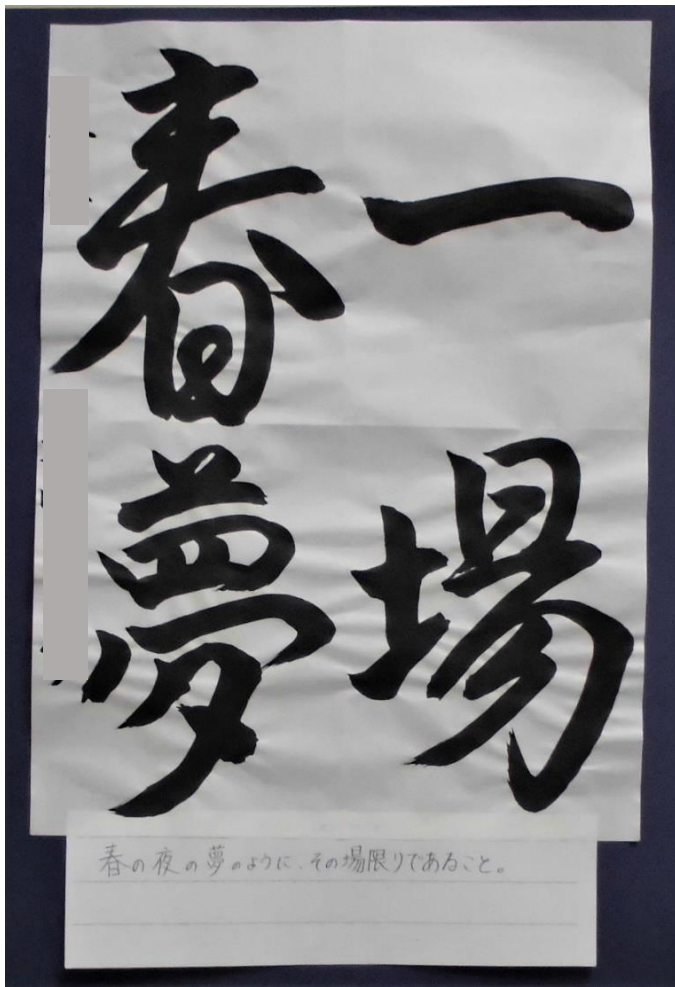 一場
春夢
春の夜の夢のように、その場限りであること。